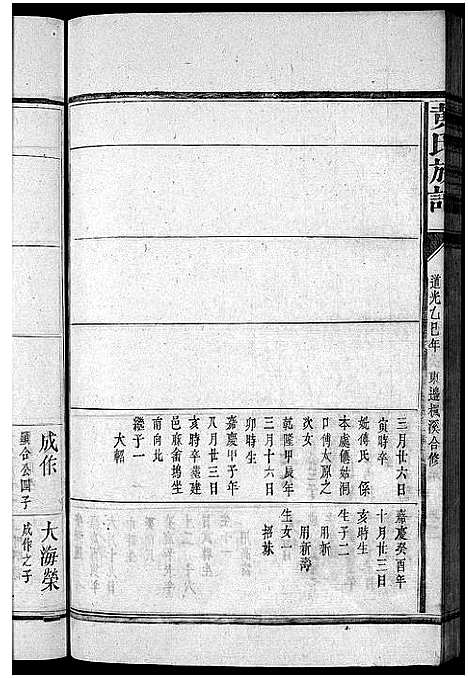 黃氏族譜
道光乙巳年
東邊楓溪合修
三月廿六日
寅時卒
妣傅氏 係
本處傅姑洞
口傅太原之
次女
乾隆甲辰年
三月十六日
卯時生
嘉慶甲子年
八月廿三日
亥時卒葬建
邑麻畬塢坐
南向北
繼子一
大韜
嘉慶癸酉年
十月廿三日
亥時生
生子二
用新
用新誇
生女一
招妹
成作
顯合公四子
大海榮
成作之子